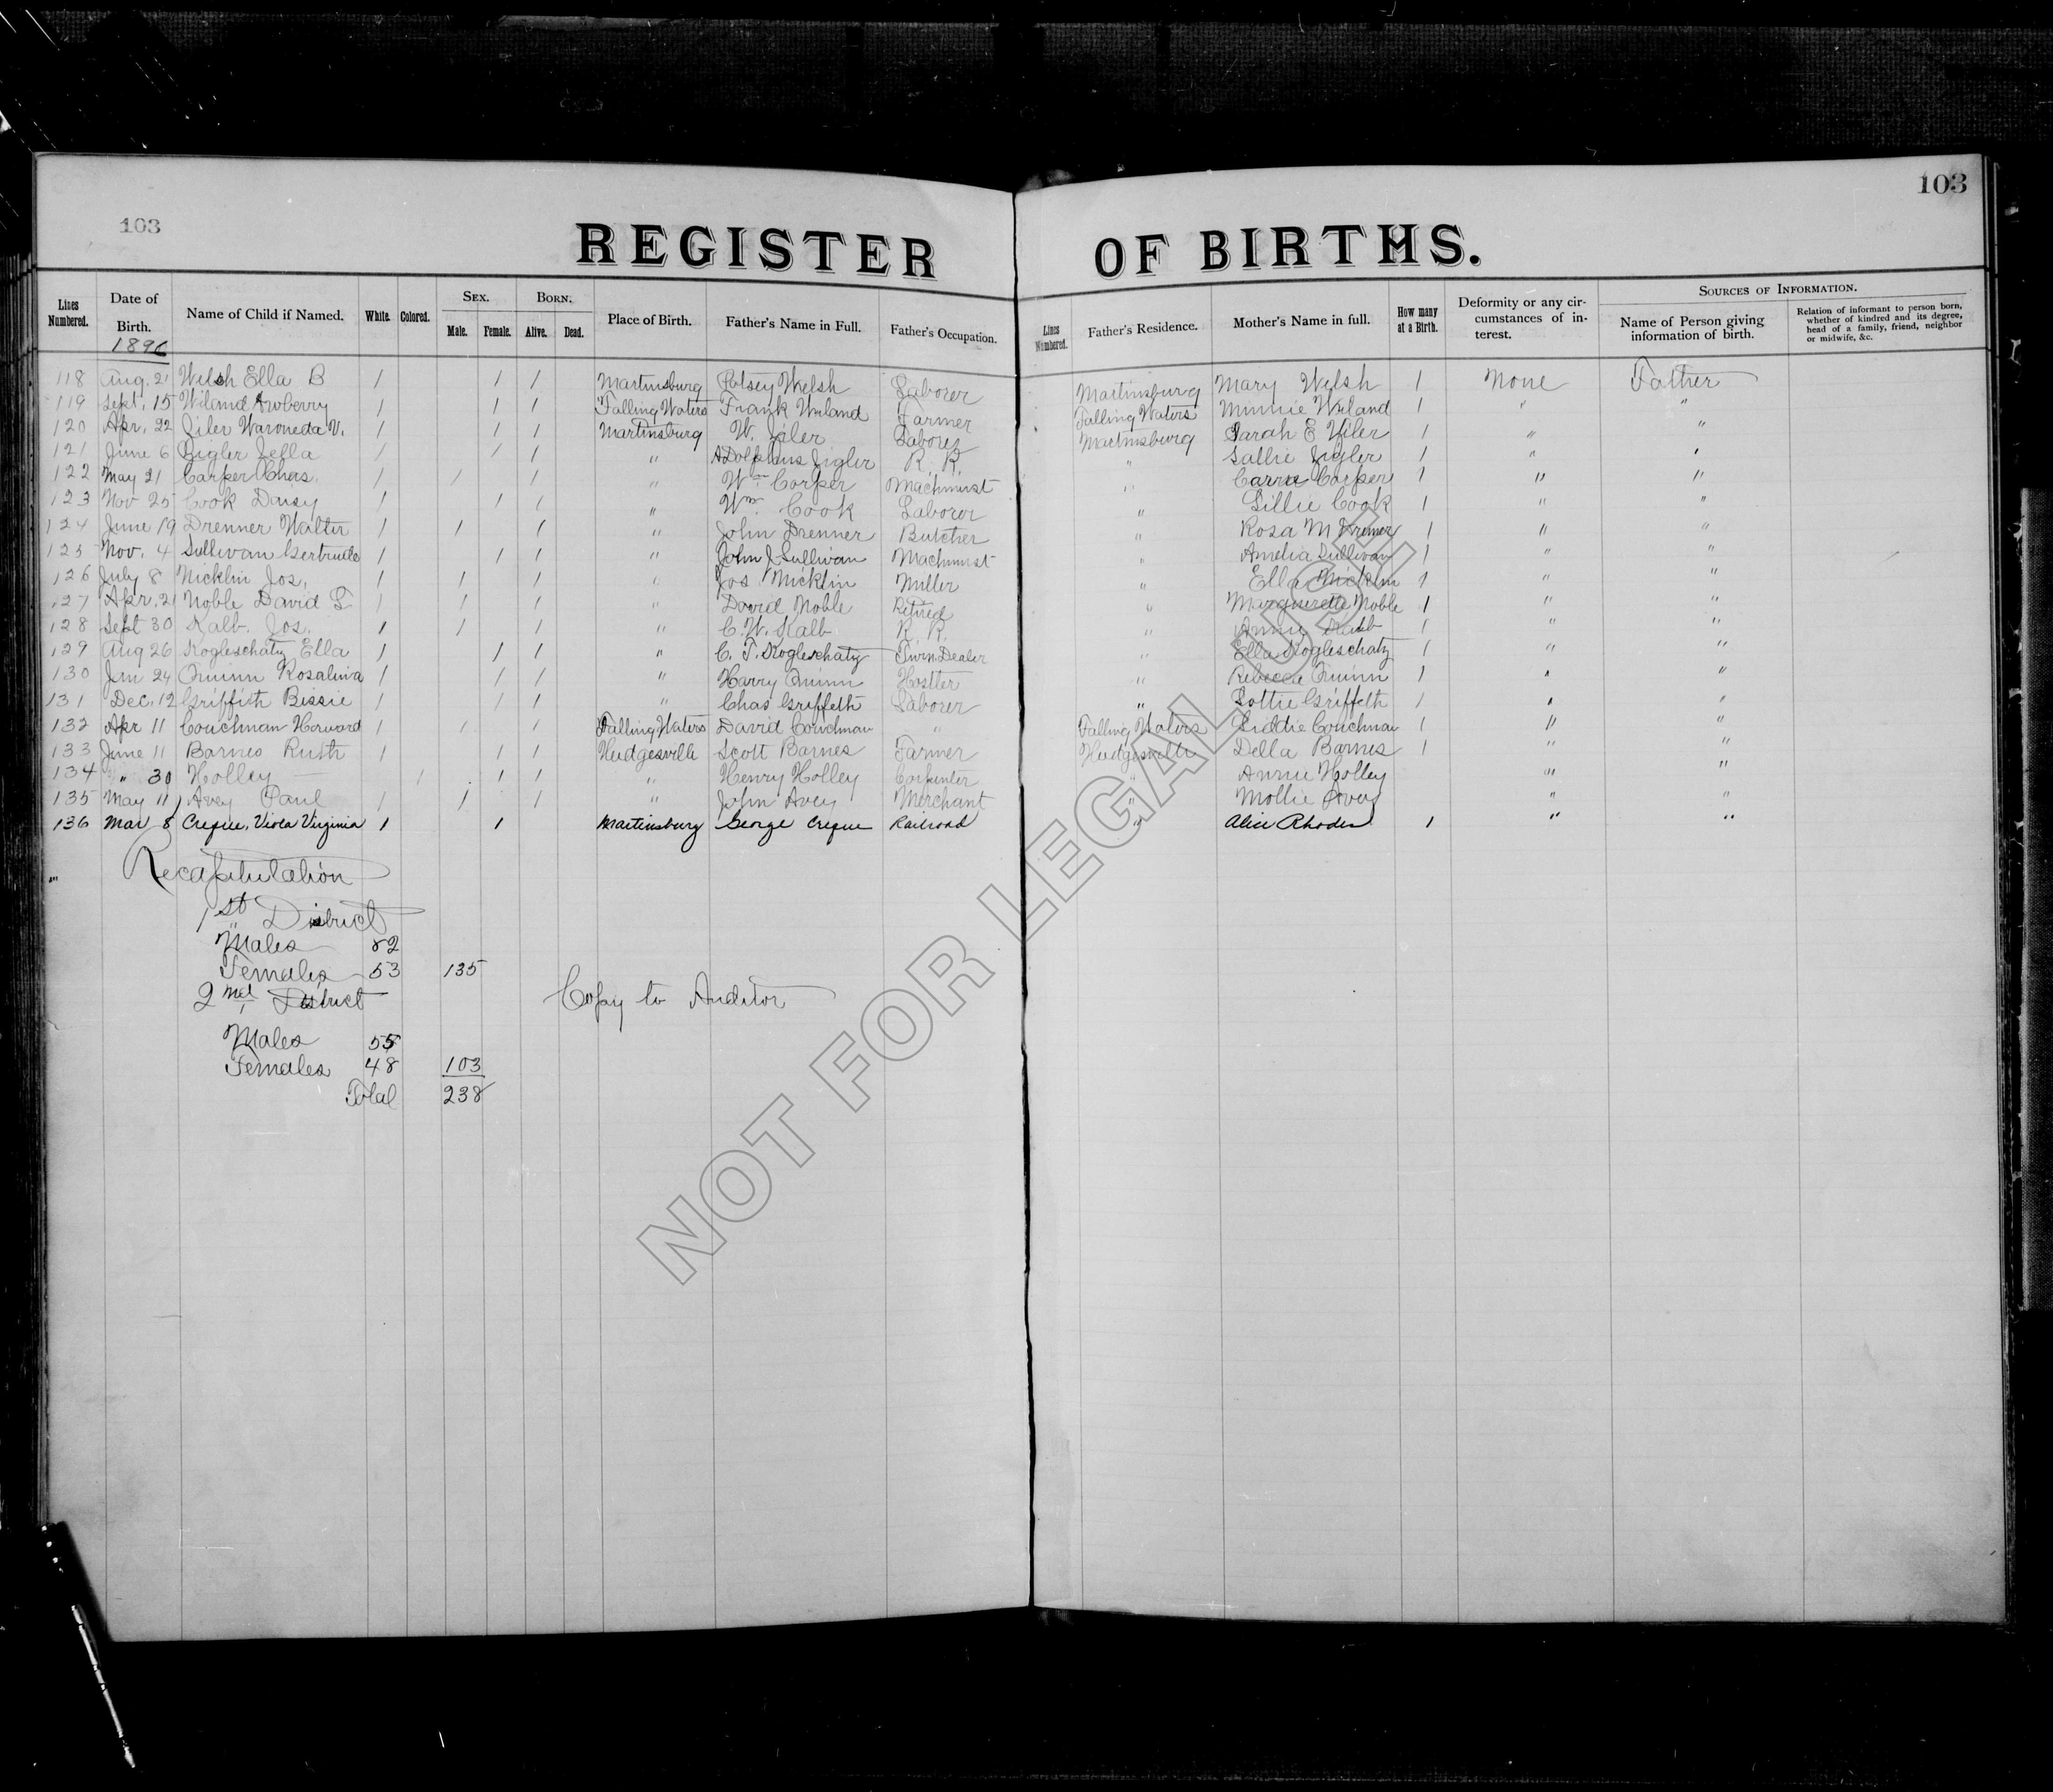 103
103
REGISTER OF BIRTHS.
Lines Numbered. Date of Birth. Name of Child if Named. White. Colored. Sex. Male. Female. Born. Alive. Dead. Place of Birth. Father's Name in Full. Father's Occupation. Lines Numbered. Father's Residence. Mother's Name in full. How many at a Birth. Deformity or any circumstances of interest. Sources of Information. Name of Person giving information of birth. Relation of informant to person born, whether of kindred and its degree, head of a family, friend, neighbor or midwife, &c.
1896
118 Aug. 21 Welsh Ella B 1 1 1 Martinsburg Welsh Laborer Martinsburg Mary Welsh 1 None Father
119 Sept. 15 Wiland 1 1 1 Falling Waters Frank Wiland Farmer Falling Waters Minnie Wiland 1 " "
120 Apr. 22 Ziler V. 1 1 1 Martinsburg W. Ziler Laborer Martinsburg Sarah E Ziler 1 " "
121 June 6 Zigler Zella 1 1 1 " Adolphus Zigler R. R. " Sallie Zigler 1 " "
122 May 21 Carper Chas. 1 1 1 " Wm Carper Machinist " Carrie Carper 1 " "
123 Nov 25 Cook Daisy 1 1 1 " Wm. Cook Laborer " Lillie Cook 1 " "
124 June 19 Drenner Walter 1 1 1 " John Drenner Butcher " Rosa M Drenner 1 " "
125 Nov. 4 Sullivan Gertrude 1 1 1 " John J Sullivan Machinist " Amelia Sullivan 1 " "
126 July 8 Nicklin Jos. 1 1 1 " Jos Nicklin Miller " Ella Nicklin 1 " "
127 Apr. 21 Noble David L 1 1 1 " David Noble Retired " Marguerette Noble 1 " "
128 Sept 30 Kalb. Jos. 1 1 1 " C. W. Kalb R. R. " Annie Kalb 1 " "
129 Aug 26 Kogleschatz Ella 1 1 1 " C. T. Kogleschatz Furn. Dealer " Ella Kogleschatz 1 " "
130 Jan 24 Quinn Rosalina 1 1 1 " Harry Quinn Hostler " Rebecca Quinn 1 " "
131 Dec. 12 Griffith Bessie 1 1 1 " Chas Griffeth Laborer " Lottie Griffeth 1 " "
132 Apr 11 Couchman Howard 1 1 1 Falling Waters David Couchman " Falling Waters Liddie Couchman 1 " "
133 June 11 Barnes Ruth 1 1 1 Hedgesville Scott Barnes Farmer Hedgesville Della Barnes 1 " "
134 " 30 Holley 1 1 1 " Henry Holley Carpenter " Annie Holley " "
135 May 11 Avey Paul 1 1 1 " John Avey Merchant " Mollie Avey " "
136 Mar 8 Creque, Viola Virginia 1 1 Martinsburg George Creque Railroad " Alice Rhoden 1 " "
Recapitulation
1st District
Males 82
Females 53 135
2nd District
Copy to Auditor
Males 55
Females 48 103
Total 238
NOT FOR LEGAL USE